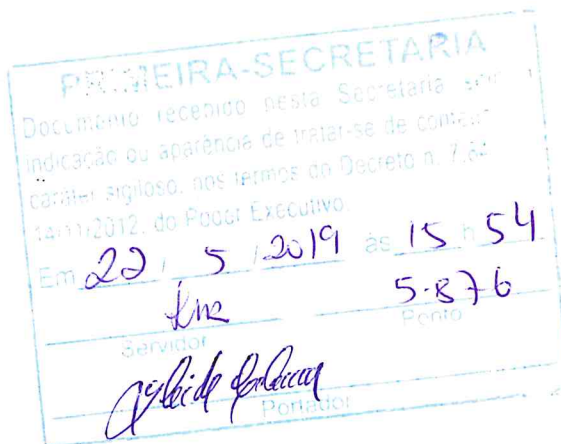 PRIMEIRA-SECRETARIA
Documento recebido nesta Secretaria sem
indicação ou aparência de tratar-se de
caráter sigiloso, nos termos do Decreto n. 7.84
14/11/2012, do Poder Executivo.
Em 22 / 5 / 2019 às 15 h 54
5.876
Servidor Ponto
Portador